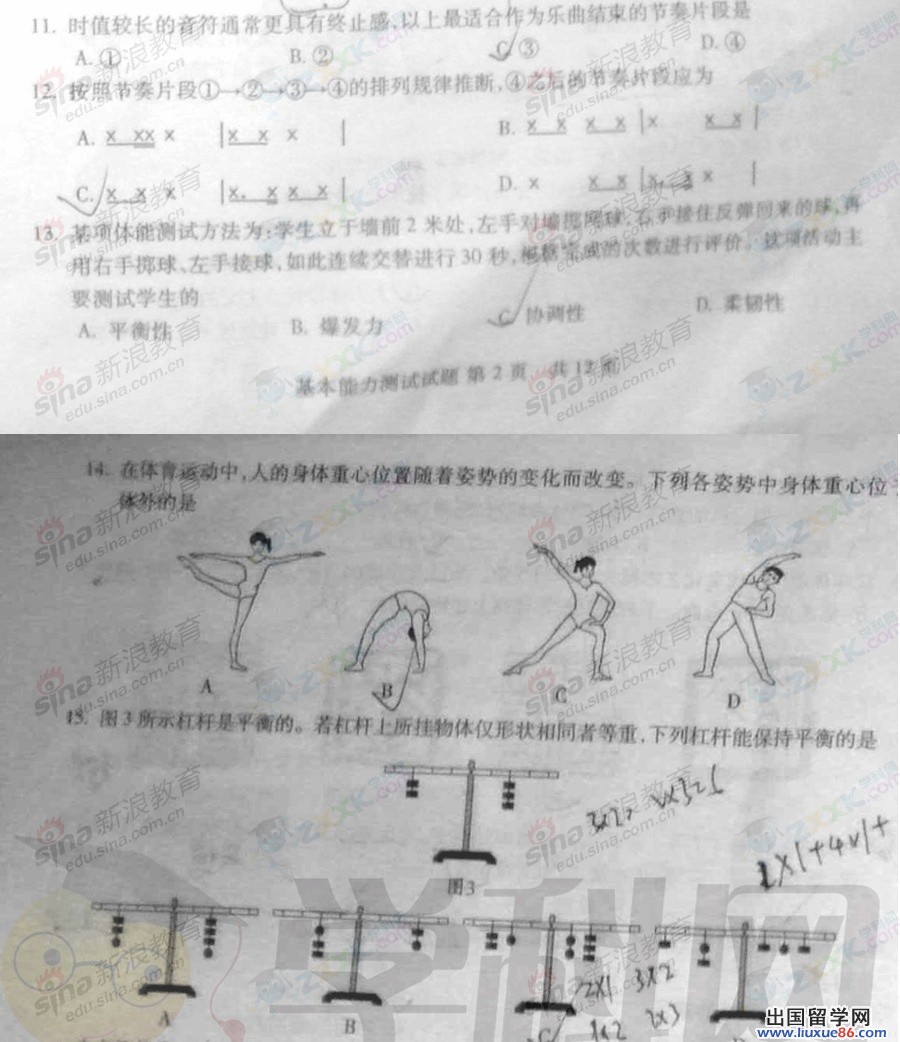 11. 时值较长的音符通常更具有终止感,以上最适合作为乐曲结束的节奏片段是
A. ① B. ② C. ③ D. ④
12. 按照节奏片段①→②→③→④的排列规律推断,④之后的节奏片段应为
A. x xx x | x x x |
B. x x x x | x x x |
C. x x x | x. x x x |
D. x x x | x. x x |
13. 某项体能测试方法为:学生立于墙前2米处,左手对墙掷网球,右手接住反弹回来的球,再
用右手掷球、左手接球,如此连续交替进行30秒,根据完成的次数进行评价。这项活动主
要测试学生的
A. 平衡性 B. 爆发力 C. 协调性 D. 柔韧性
基本能力测试试题 第2页 共12页
14. 在体育运动中,人的身体重心位置随着姿势的变化而改变。下列各姿势中身体重心位于
体外的是
A B C D
15. 图3所示杠杆是平衡的。若杠杆上所挂物体仅形状相同者等重,下列杠杆能保持平衡的是
图3
1×1+4×1+
2×1 3×2
1×2 2×3
A B C D
sina新浪教育
edu.sina.com.cn
学科网
ZXXK.com
出国留学网
www.liuxue86.com